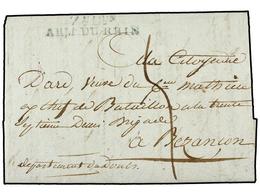 ARM. DU RHIN
A la Citoyenne
Dard Veuve du Cen Mathieu
ex chef de Bataillon a la trente
Septieme Demi Brigade
a Bezançon
departement du Doubs